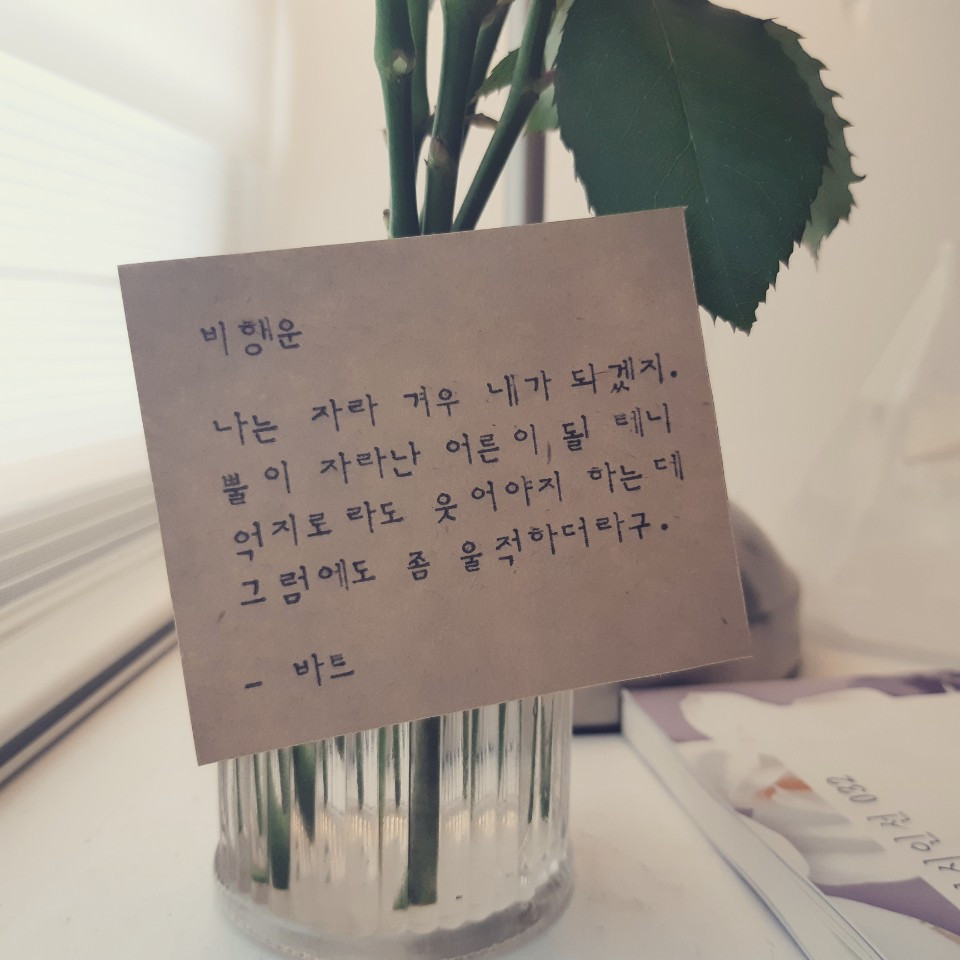 비행운
나는 자라 겨우 내가 되겠지.
뿔이 자라난 어른이 될 테니
억지로라도 웃어야지 하는데
그럼에도 좀 울적하더라구.
- 바트
시인선 032